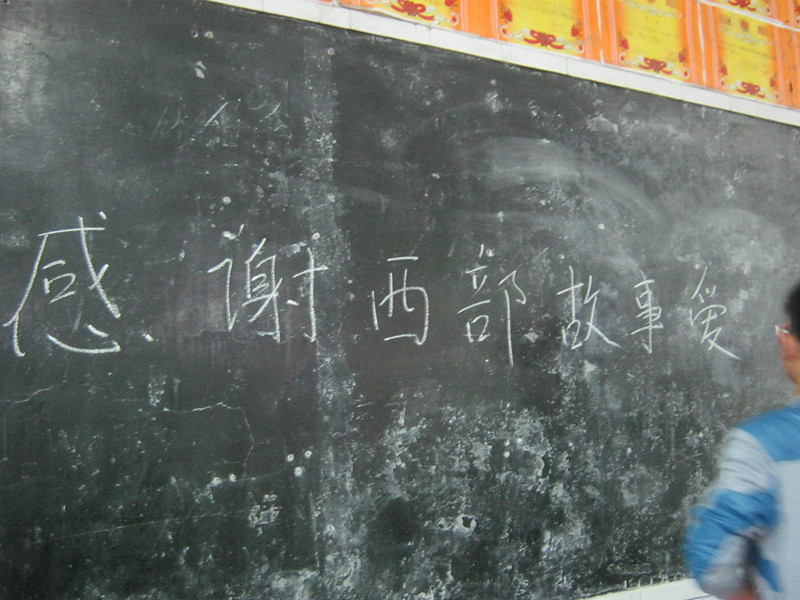 感谢西部故事爱